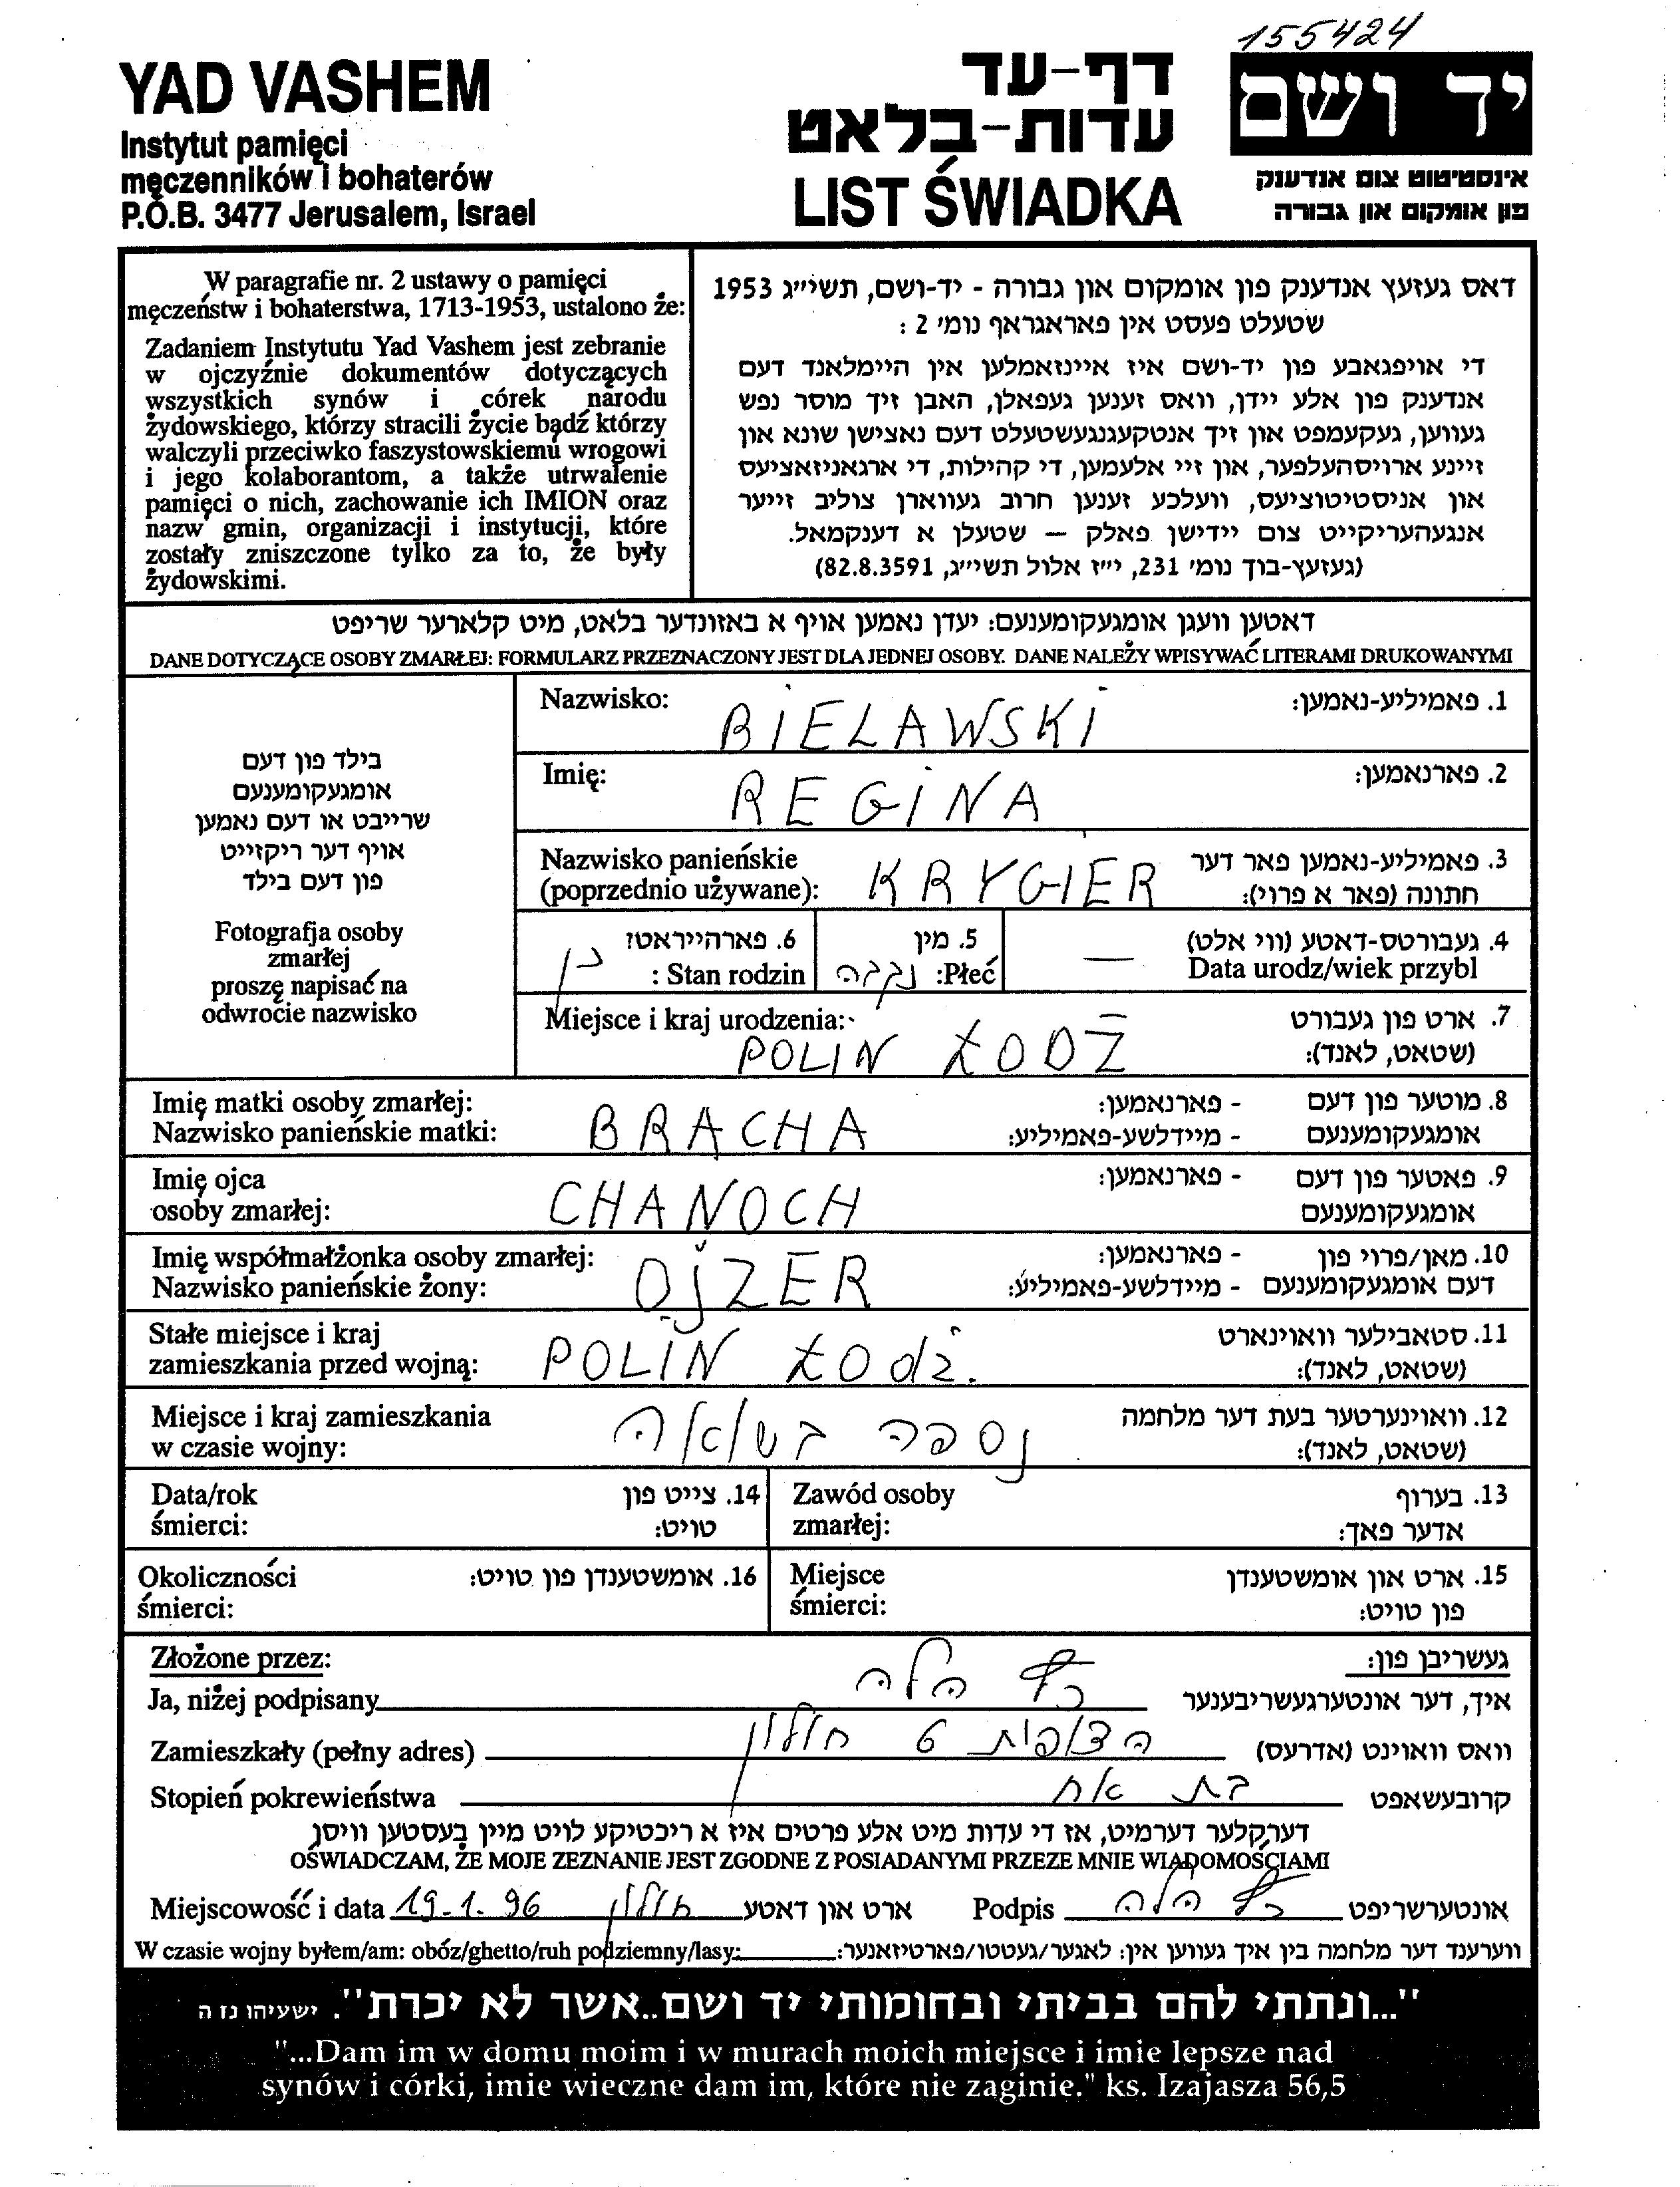 155424
YAD VASHEM
Instytut pamięci
męczenników i bohaterów
P.O.B. 3477 Jerusalem, Israel
דף-עד
עדות-בלאט
LIST ŚWIADKA
יד ושם
אינסטיטוט צום אנדענק
פון אומקום און גבורה
W paragrafie nr. 2 ustawy o pamięci
męczeństw i bohaterstwa, 1713-1953, ustalono że:
Zadaniem Instytutu Yad Vashem jest zebranie
w ojczyźnie dokumentów dotyczących
wszystkich synów i córek narodu
żydowskiego, którzy stracili życie bądź którzy
walczyli przeciwko faszystowskiemu wrogowi
i jego kolaborantom, a także utrwalenie
pamięci o nich, zachowanie ich IMION oraz
nazw gmin, organizacji i instytucji, które
zostały zniszczone tylko za to, że były
żydowskimi.
דאס געזעץ אנדענק פון אומקום און גבורה - יד-ושם, תשי״ג 1953
שטעלט פעסט אין פאראגראף נומ׳ 2 :
די אויפגאבע פון יד-ושם איז איינזאמלען אין היימלאנד דעם
אנדענק פון אלע יידן, וואס זענען געפאלן, האבן זיך מוסר נפש
געווען, געקעמפט און זיך אנטקעגנגעשטעלט דעם נאצישן שונא און
זיינע ארויסהעלפער, און זיי אלעמען, די קהילות, די ארגאניזאציעס
און אניסטיטוציעס, וועלכע זענען חרוב געווארן צוליב זייער
אנגעהעריקייט צום יידישן פאלק — שטעלן א דענקמאל.
(געזעץ-בוך נומ׳ 231, י״ז אלול תשי״ג, 82.8.3591)
דאטען וועגן אומגעקומענעם: יעדן נאמען אויף א באזונדער בלאט, מיט קלארער שריפט
DANE DOTYCZĄCE OSOBY ZMARŁEJ: FORMULARZ PRZEZNACZONY JEST DLA JEDNEJ OSOBY. DANE NALEŻY WPISYWAĆ LITERAMI DRUKOWANYMI
בילד פון דעם
אומגעקומענעם
שרייבט או דעם נאמען
אויף דער ריקזייט
פון דעם בילד
Fotografja osoby
zmarłej
proszę napisać na
odwrocie nazwisko
Nazwisko: BIELAWSKI 1. פאמיליע-נאמען:
Imię: REGINA 2. פארנאמען:
Nazwisko panieńskie
(poprzednio używane): KRYGIER 3. פאמיליע-נאמען פאר דער
חתונה (פאר א פרוי):
4. געבורטס-דאטע (ווי אלט)
Data urodz/wiek przybl —
5. מין
Płeć: נקבה
6. פארהייראט?
Stan rodzin : כן
Miejsce i kraj urodzenia: POLIN ŁODŹ 7. ארט פון געבורט
(שטאט, לאנד):
Imię matki osoby zmarłej:
Nazwisko panieńskie matki: BRACHA 8. מוטער פון דעם - פארנאמען:
אומגעקומענעם - מיידלשע-פאמיליע:
Imię ojca
osoby zmarłej: CHANOCH 9. פאטער פון דעם - פארנאמען:
אומגעקומענעם
Imię współmałżonka osoby zmarłej:
Nazwisko panieńskie żony: OJZER 10. מאן/פרוי פון - פארנאמען:
דעם אומגעקומענעם - מיידלשע-פאמיליע:
Stałe miejsce i kraj
zamieszkania przed wojną: POLIN ŁOdż. 11. סטאבילער וואוינארט
(שטאט, לאנד):
Miejsce i kraj zamieszkania
w czasie wojny: נספה בשואה 12. וואוינערטער בעת דער מלחמה
(שטאט, לאנד):
Data/rok
śmierci: 14. צייט פון
טויט:
Zawód osoby
zmarłej: 13. בערוף
אדער פאך:
Okoliczności
śmierci: 16. אומשטענדן פון טויט:
Miejsce
śmierci: 15. ארט און אומשטענדן
פון טויט:
Złożone przez: געשריבן פון:
Ja, niżej podpisany הלה איך, דער אונטערגעשריבענער
Zamieszkały (pełny adres) הצופית 6 חולון וואס וואוינט (אדרעס)
Stopień pokrewieństwa בת אח קרובעשאפט
דערקלער דערמיט, אז די עדות מיט אלע פרטים איז א ריכטיקע לויט מיין בעסטען וויסן
OŚWIADCZAM, ŻE MOJE ZEZNANIE JEST ZGODNE Z POSIADANYMI PRZEZE MNIE WIADOMOŚCIAMI
Miejscowość i data 19-1-96 חולון ארט און דאטע Podpis הלה אונטערשריפט
W czasie wojny byłem/am: obóz/ghetto/ruh podziemny/lasy: ווערענד דער מלחמה בין איך געווען אין: לאגער/געטטו/פארטיזאנער:
"...ונתתי להם בביתי ובחומותי יד ושם..אשר לא יכרת". ישעיהו נז ה
"...Dam im w domu moim i w murach moich miejsce i imie lepsze nad
synów i córki, imie wieczne dam im, które nie zaginie." ks. Izajasza 56,5